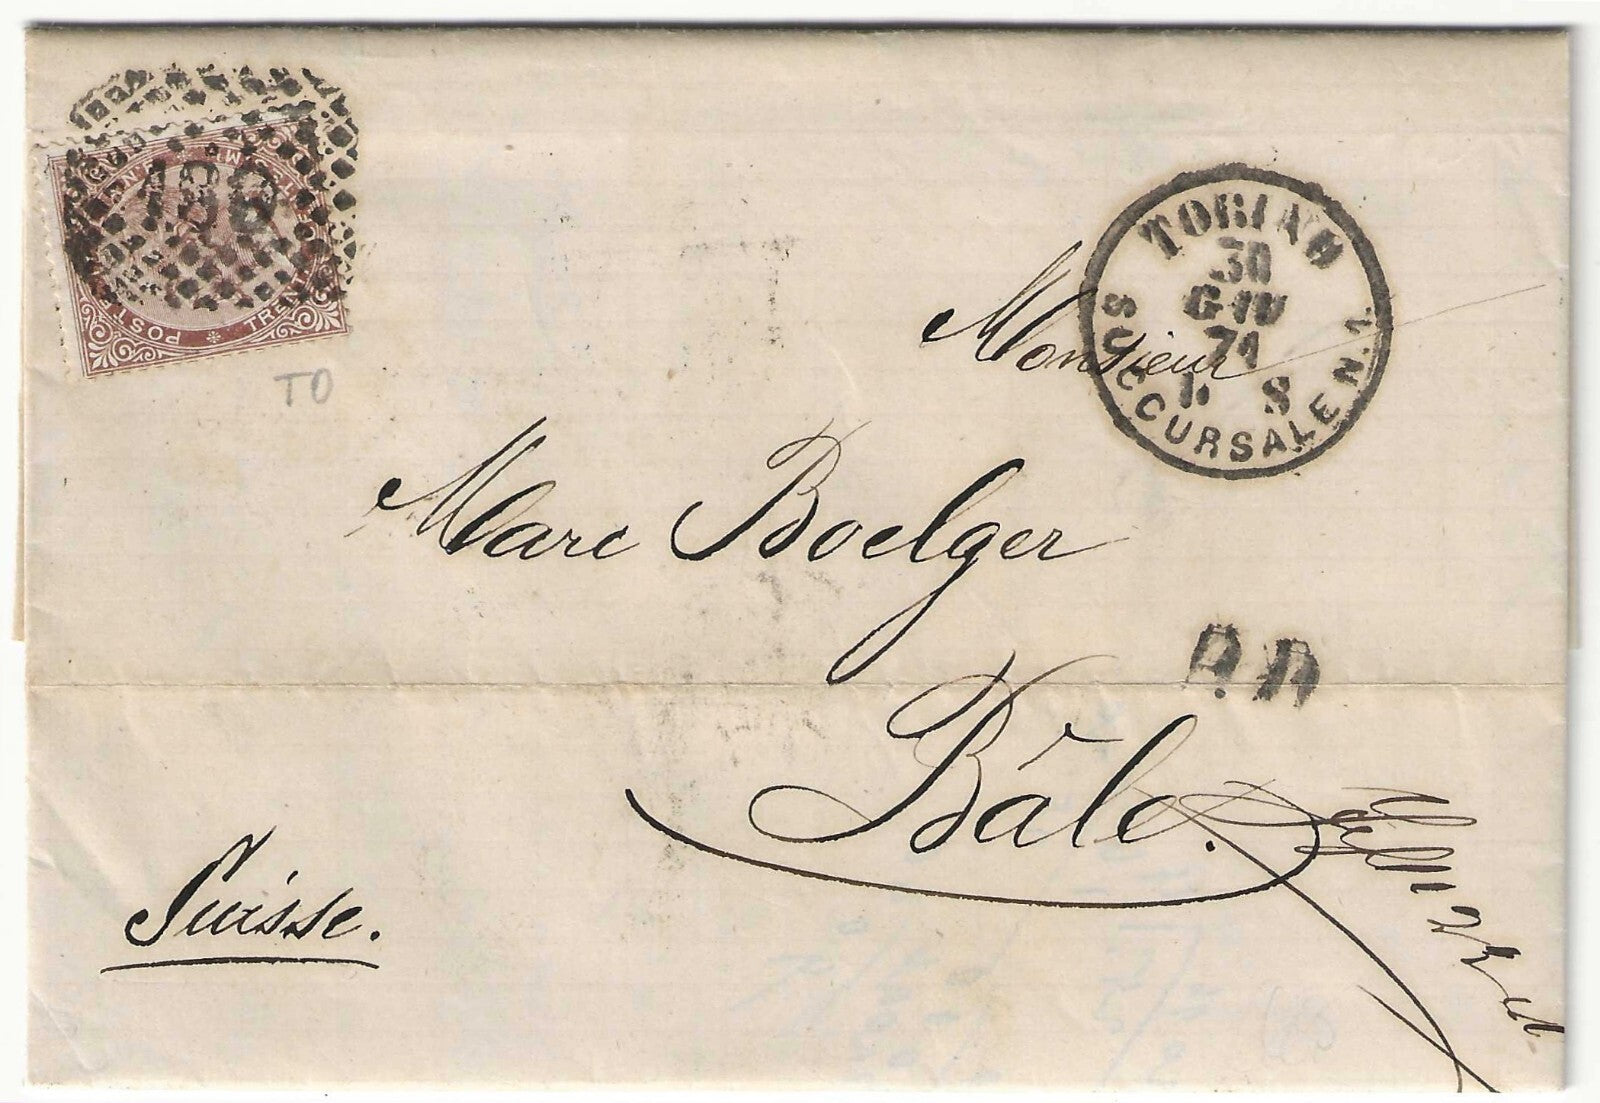 189
POST
TRENT
TO
TORINO
30
GIU
71
1. S
SUCCURSALE N. 1.
Monsieur
Marc Boelger
P.D.
Bâle.
Suisse.